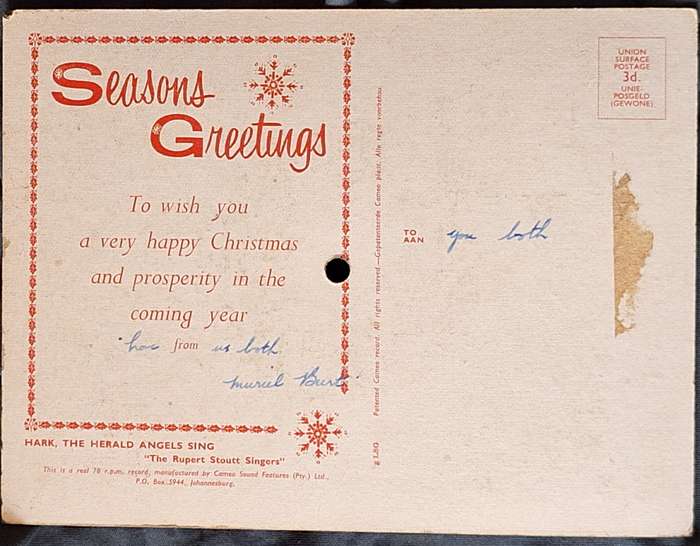 Seasons
Greetings
To wish you
a very happy Christmas
and prosperity in the
coming year
from us both
Muriel Burt
HARK, THE HERALD ANGELS SING
"The Rupert Stoutt Singers"
This is a real 78 r.p.m. record, manufactured by Cameo Sound Features (Pty.) Ltd.,
P.O. Box 5944, Johannesburg.
Patented Cameo record. All rights reserved—Gepatenteerde Cameo plaat. Alle regte voorbehou
UNION
SURFACE
POSTAGE
3d.
UNIE-
POSGELD
(GEWONE)
TO
AAN
you both